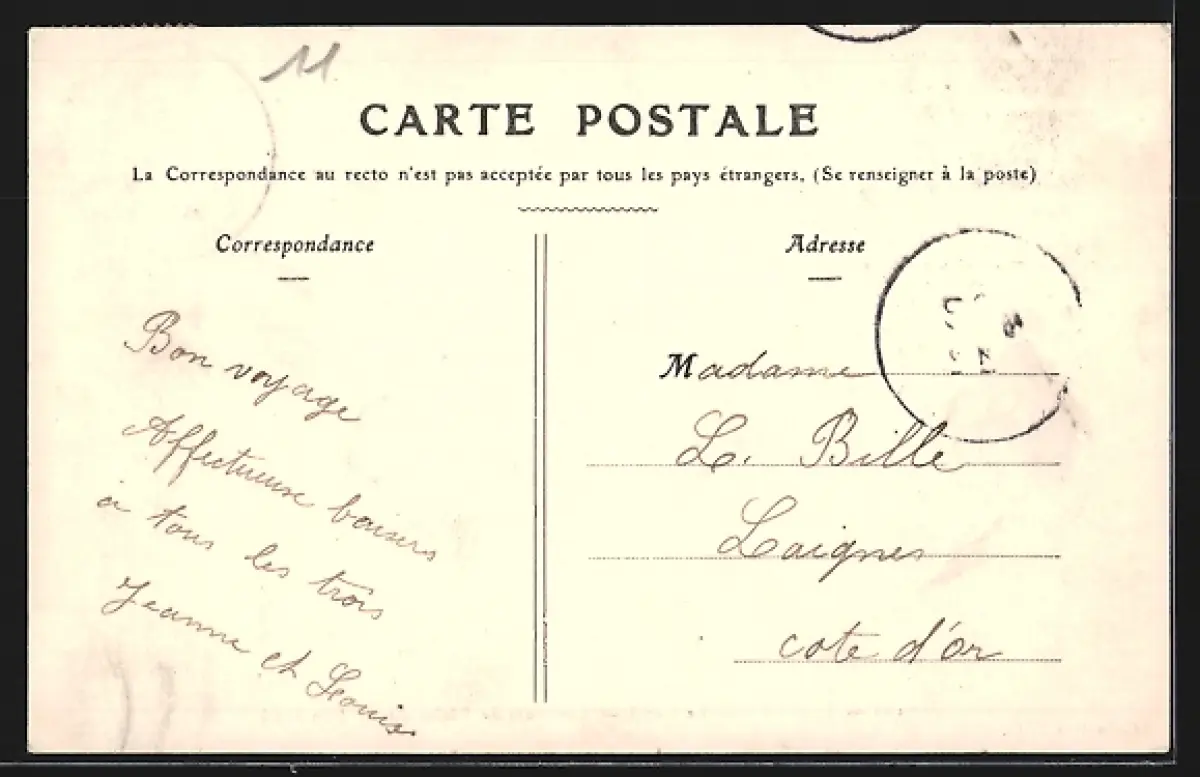 11
CARTE POSTALE
La Correspondance au recto n'est pas acceptée par tous les pays étrangers. (Se renseigner à la poste)
Correspondance
Bon voyage
Affectueuse baisers
a tous les trois
Jeanne et Louis
Adresse
Madame
L. Bille
Laignes
cote d'or